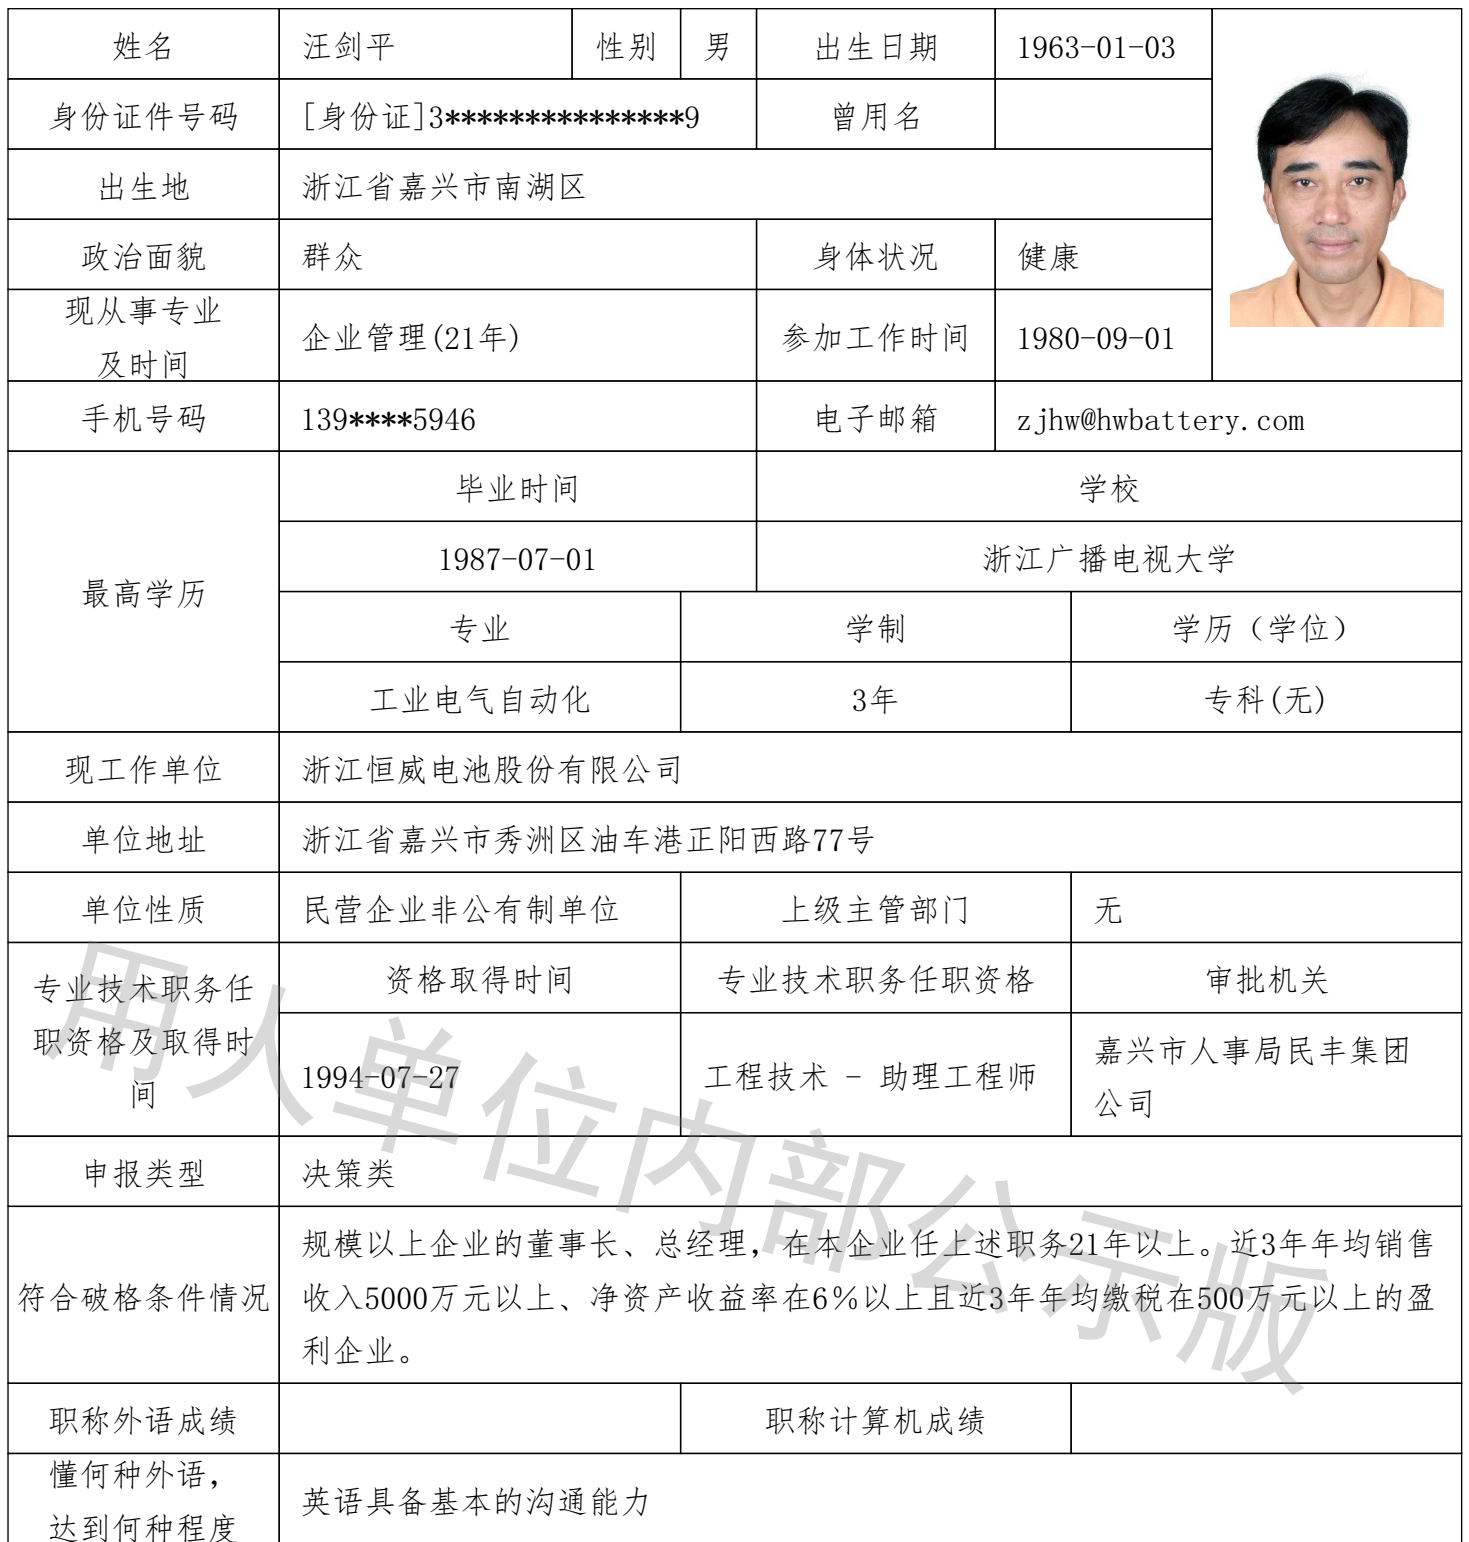 姓名 汪剑平 性别 男 出生日期 1963-01-03
身份证件号码 [身份证]3***************9 曾用名
出生地 浙江省嘉兴市南湖区
政治面貌 群众 身体状况 健康
现从事专业
及时间
企业管理(21年) 参加工作时间 1980-09-01
手机号码 139****5946 电子邮箱 zjhw@hwbattery.com
最高学历
毕业时间 学校
1987-07-01 浙江广播电视大学
专业 学制 学历（学位）
工业电气自动化 3年 专科(无)
现工作单位 浙江恒威电池股份有限公司
单位地址 浙江省嘉兴市秀洲区油车港正阳西路77号
单位性质 民营企业非公有制单位 上级主管部门 无
专业技术职务任
职资格及取得时
间
资格取得时间 专业技术职务任职资格 审批机关
1994-07-27 工程技术 - 助理工程师 嘉兴市人事局民丰集团
公司
申报类型 决策类
符合破格条件情况
规模以上企业的董事长、总经理，在本企业任上述职务21年以上。近3年年均销售
收入5000万元以上、净资产收益率在6%以上且近3年年均缴税在500万元以上的盈
利企业。
职称外语成绩 职称计算机成绩
懂何种外语，
达到何种程度
英语具备基本的沟通能力
用人单位内部公示版